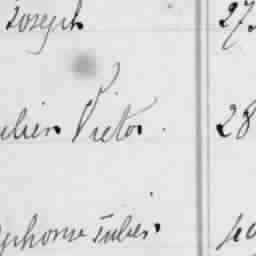 Joseph 27
ulien Victor. 28
phonse Jules.